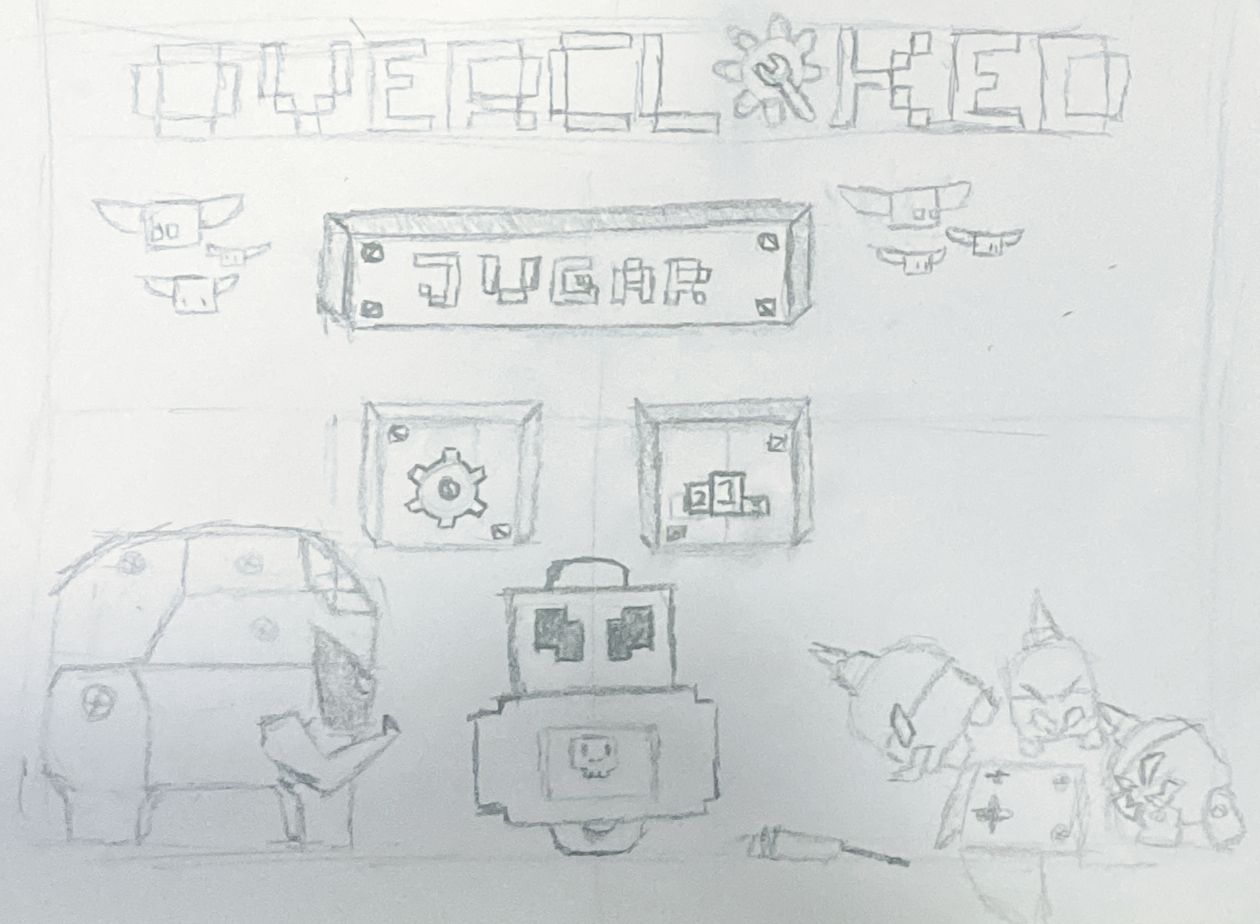 OVERCLOKED
JUGAR
2 1 3